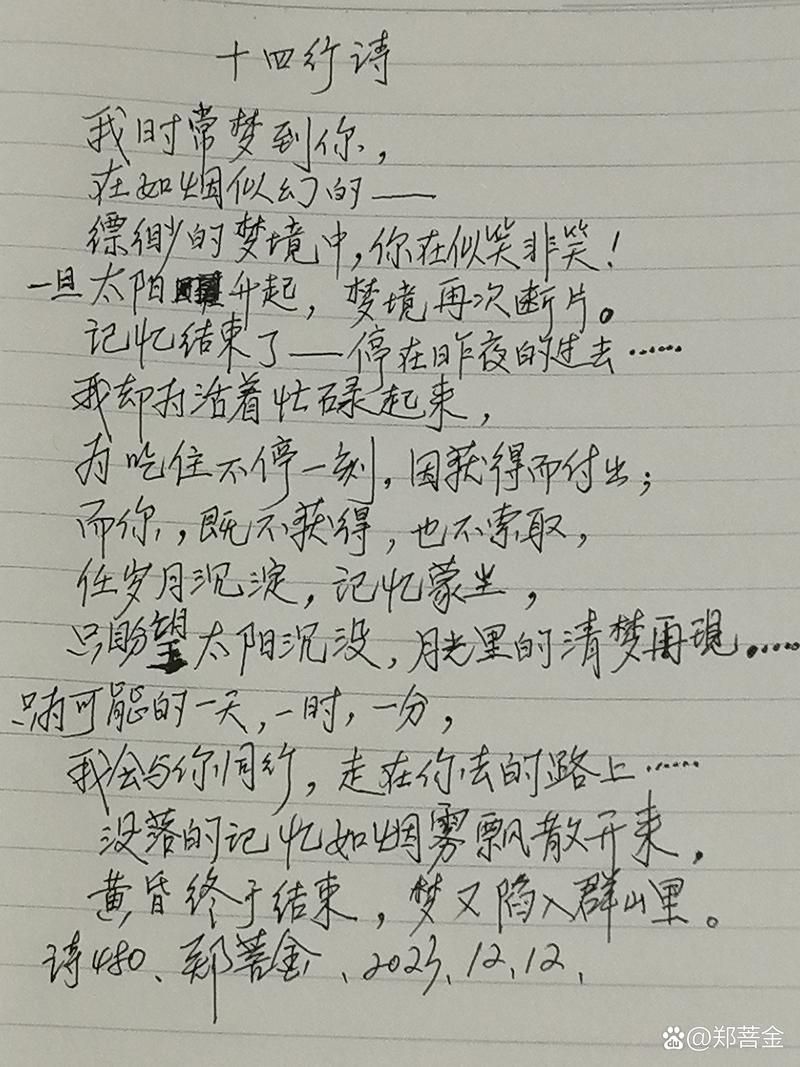 十四行诗
我时常梦到你，
在如烟似幻的——
缥缈的梦境中，你在似笑非笑！
一旦太阳升起，梦境再次断片。
记忆结束了——停在昨夜的过去……
我却为活着忙碌起来，
为吃住不停一刻，因获得而付出；
而你，既不获得，也不索取，
任岁月沉淀，记忆蒙尘，
只盼望太阳沉没，月光里的清梦再现……
只为可能的一天，一时，一分，
我会与你同行，走在你去的路上……
没落的记忆如烟雾飘散开来，
黄昏终于结束，梦又陷入群山里。
诗480、郑菩金、2023、12、12、
du @郑菩金